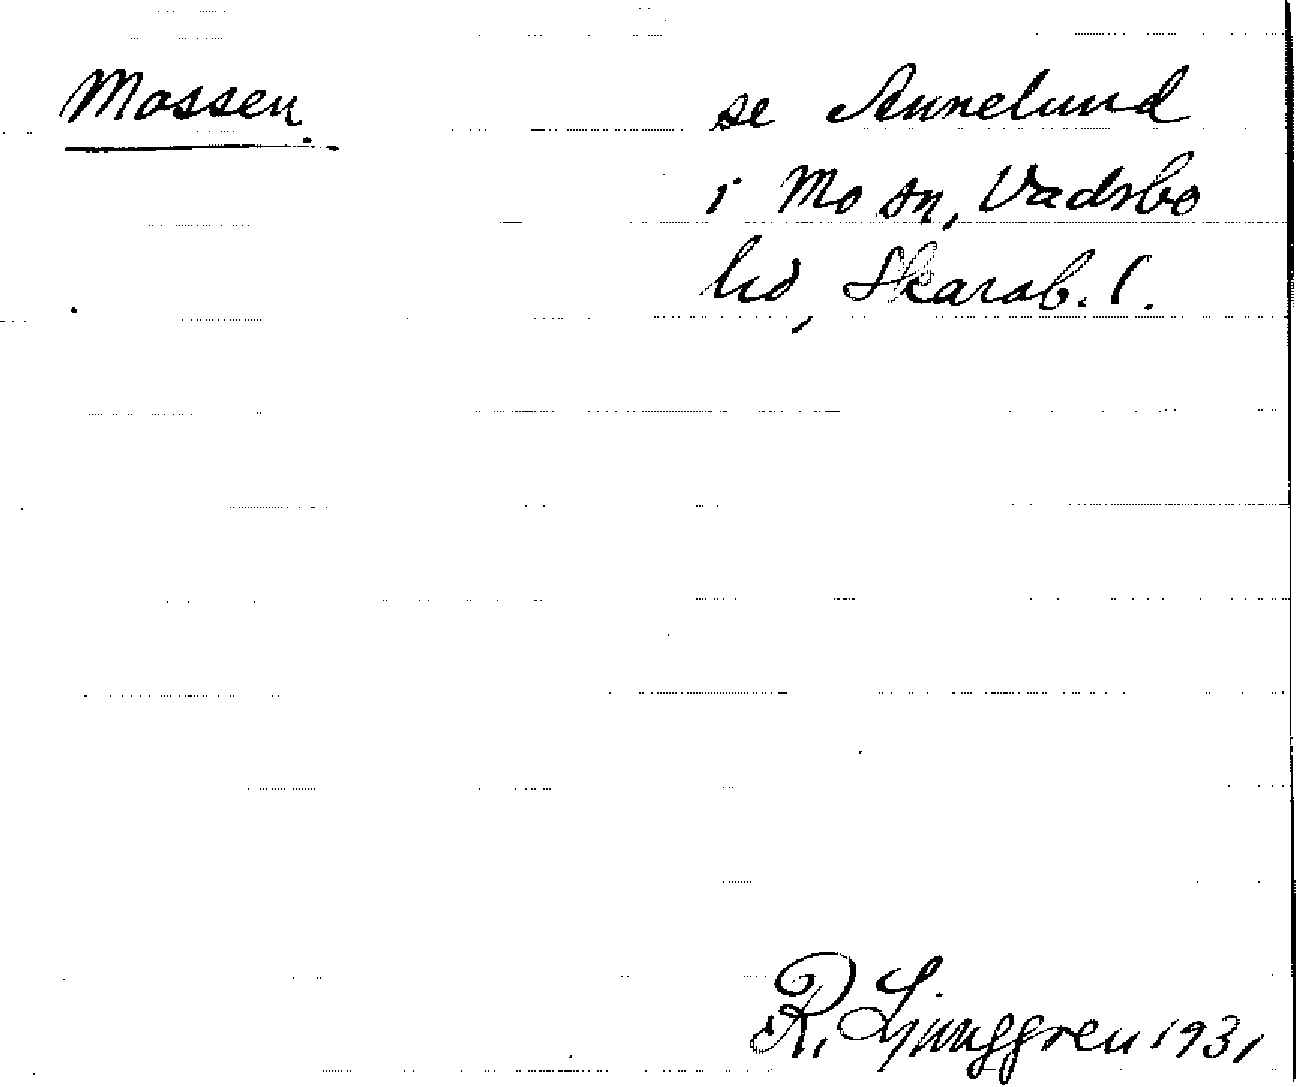 Mossen.
se Annelund
i Mo sn, Vadsbo
hd, Skarab. l.
R. Ljunggren 1931